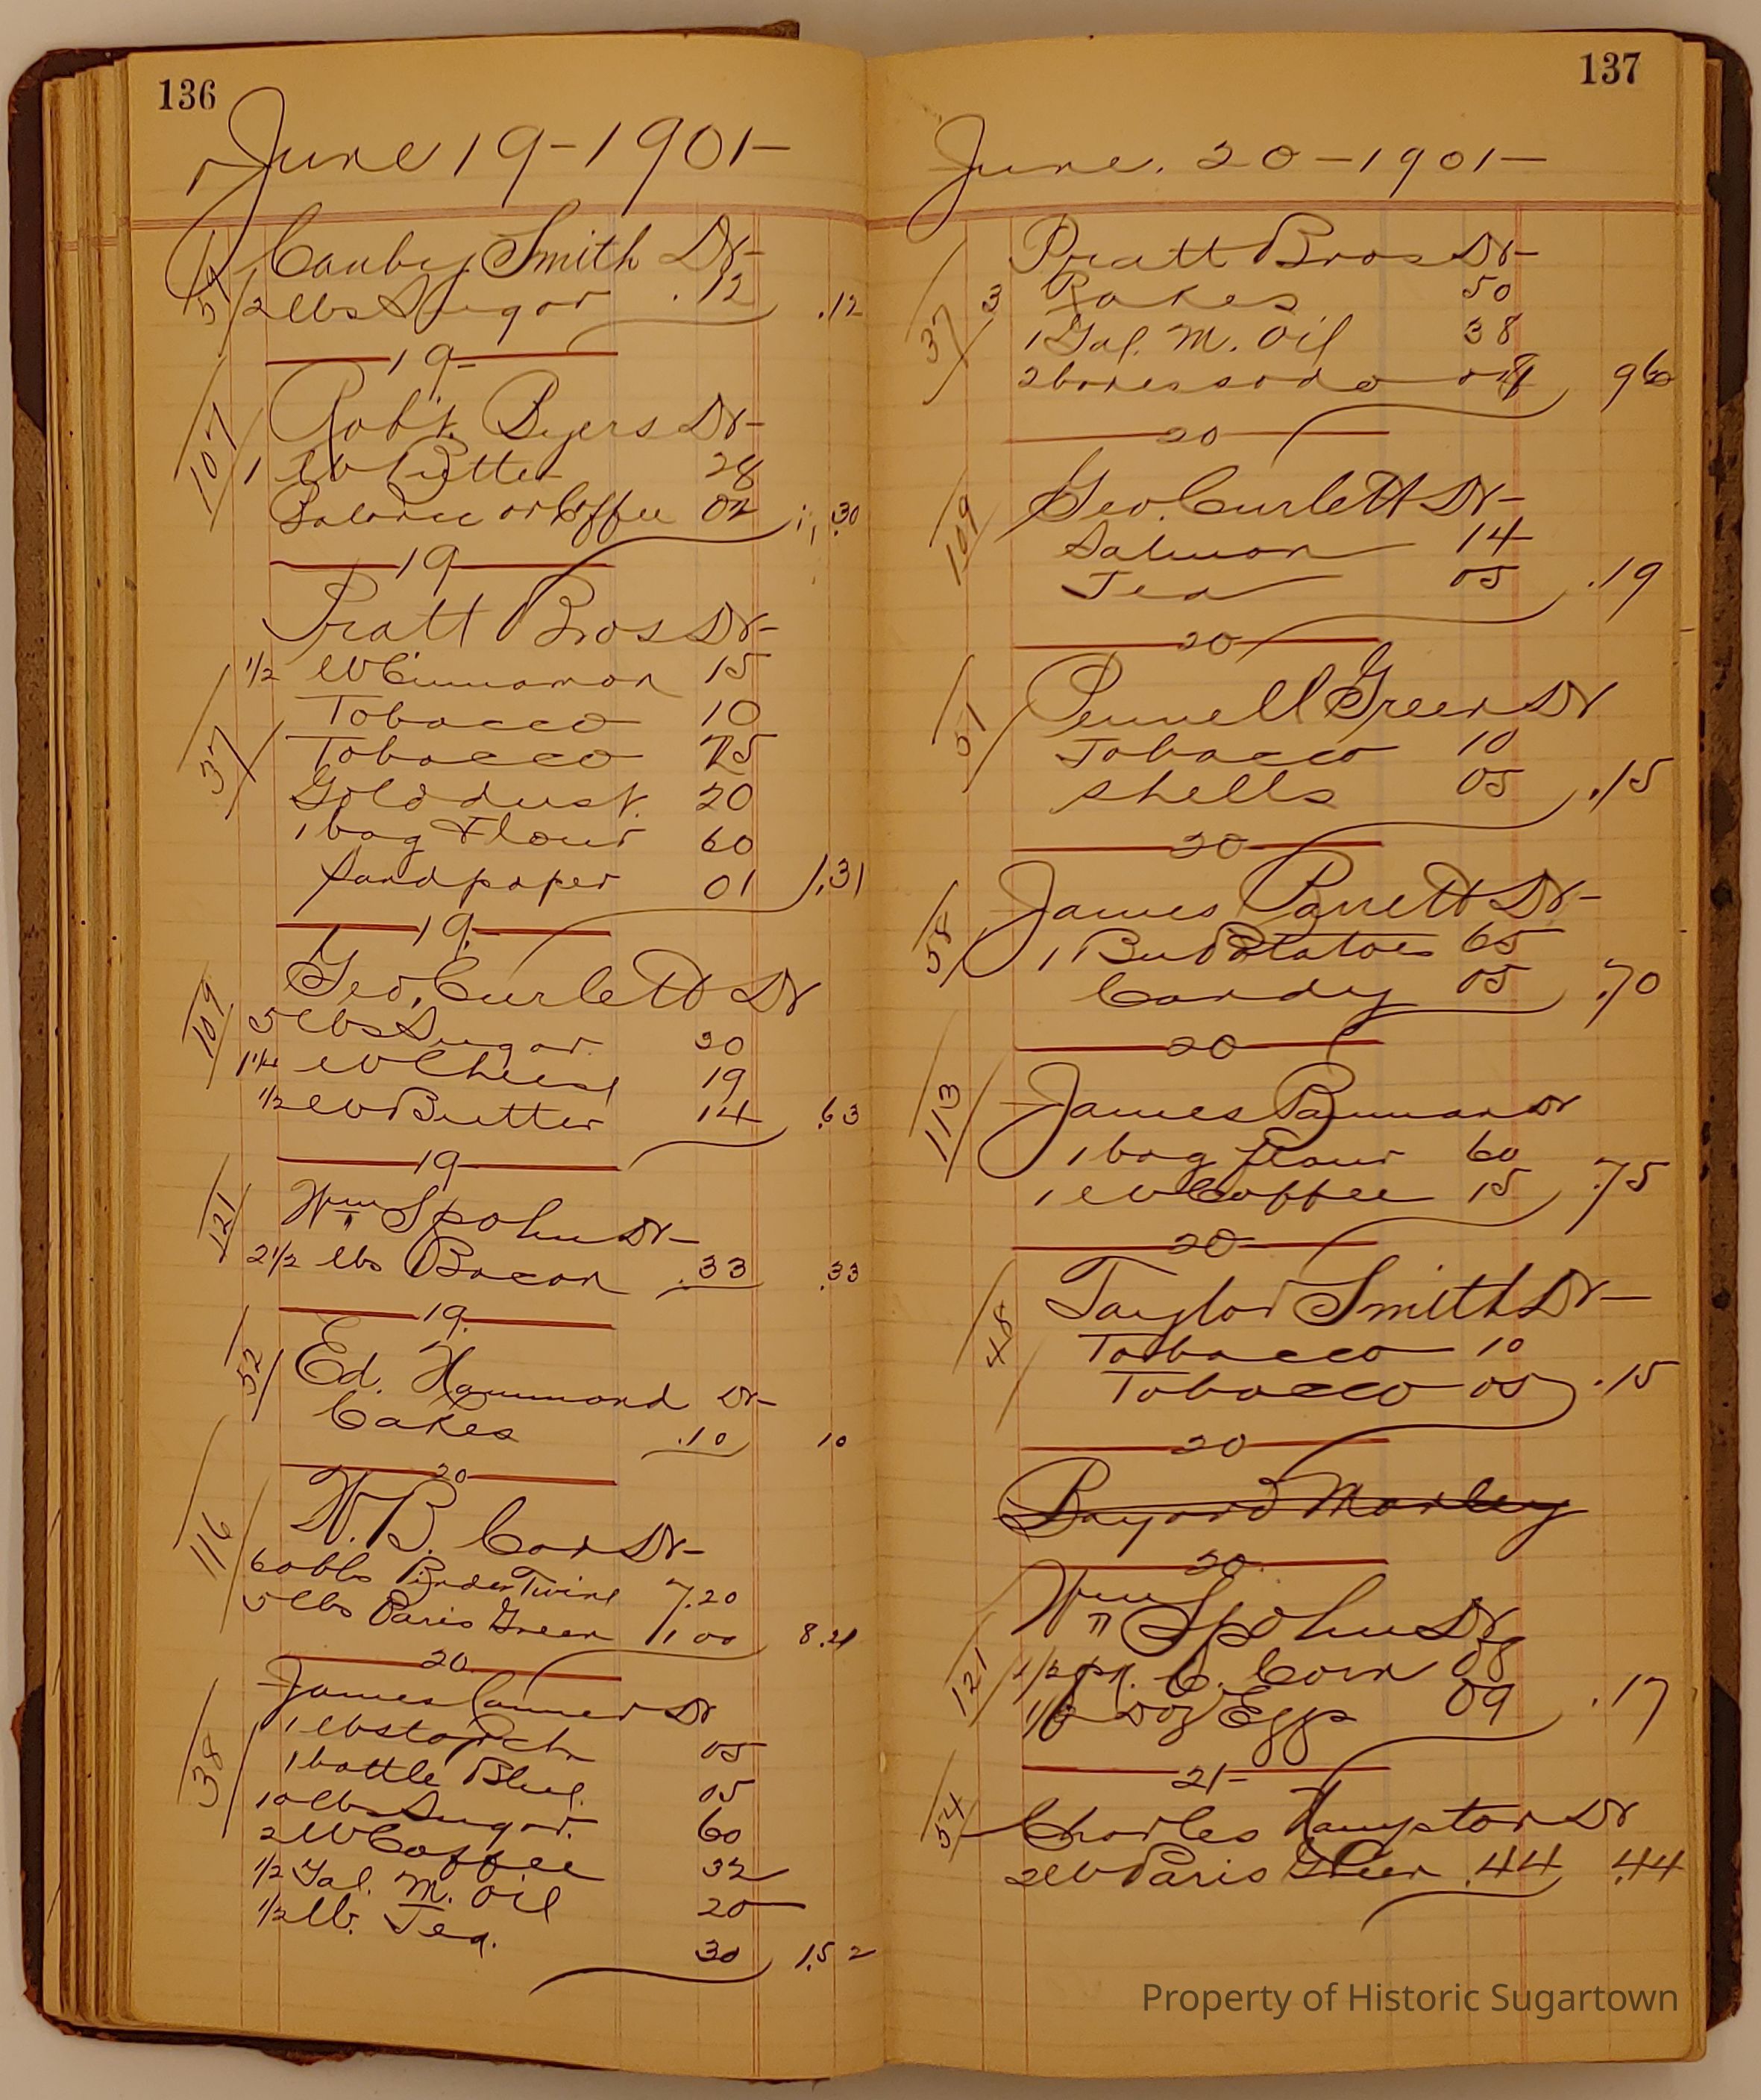 136
June 19-1901-
59 Canby Smith Dr-
2 lbs Sugar .12 .12
19-
107 Rob't. Byers Dr-
1 lb Butter 28
Balance on Coffee 02 .30
19
37 Pratt Bros Dr-
1/2 lb Cinnamon 15
Tobacco 10
Tobacco 25
Gold dust. 20
1 bag Flour 60
Sandpaper 01 1.31
19.
109 Geo. Curlett Dr
5 lbs Sugar. 30
1 1/4 lb Cheese 19
1/2 lb Butter 14 .63
19
121 Wm Spohn Dr-
2 1/2 lbs Bacon .33 .33
19.
52 Ed. Hammond Dr-
Cakes .10 10
20
116 W. B. Cox Dr-
60 lbs Binder Twine 7.20
5 lbs Paris Green 1 00 8.20
20
38 James Conner Dr
1 lb starch 05
1 bottle Blue. 05
10 lbs Sugar. 60
2 lb Coffee 32
1/2 Gal. M. Oil 20
1/2 lb. Tea. 30 1.52
137
June. 20-1901-
37 Pratt Bros Dr-
3 Rakes 50
1 Gal. M. Oil 38
2 boxes soda 08 96
20
109 Geo. Curlett Dr-
Salmon 14
Tea 05 .19
20
51 Pennell Green Dr
Tobacco 10
Shells 05 .15
20
58 James Parrett Dr-
1 Bu Potatoes 65
Candy 05 .70
20
113 James Bauman Dr
1 bag flour 60
1 lb Coffee 15 .75
20
48 Taylor Smith Dr-
Tobacco 10
Tobacco 05 .15
20
Bayard Manley
20
121 Wm Spohn Dr
1/2 pk. C. Corn 08
1/2 Doz Eggs 09 .17
21-
54 Charles Hampton Dr
2 lb Paris Green .44 .44
Property of Historic Sugartown